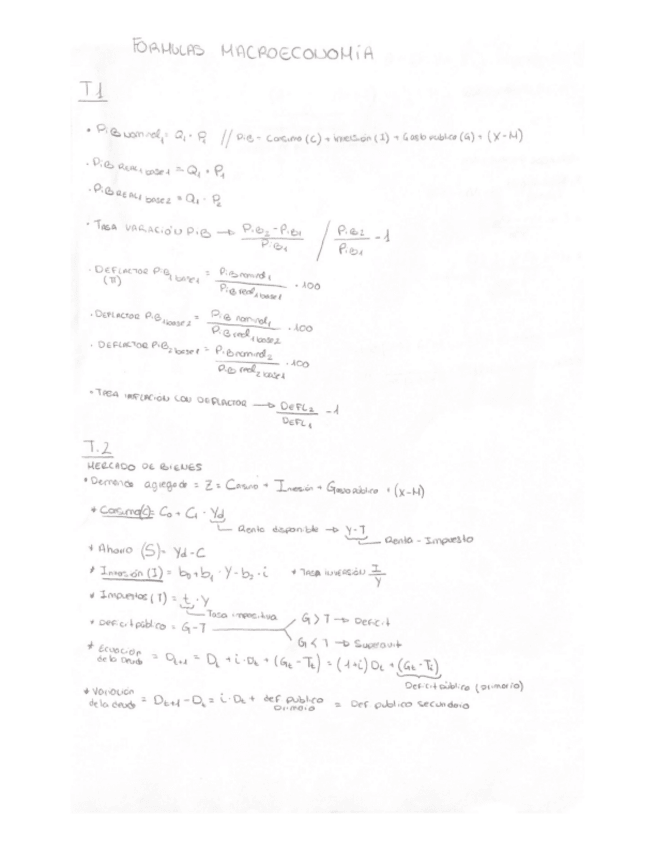 FORMULAS MACROECONOMÍA
T1
• PiB nominal₁ = Q₁ · P₁ // PiB = Consumo (C) + Inversión (I) + Gasto público (G) + (X-M)
• PiB REAL₁ base 1 = Q₁ · P₁
• PiB REAL₁ base 2 = Q₁ · P₂
• TASA VARIACIÓN PiB → (PiB₂ - PiB₁) / PiB₁ / PiB₂ / PiB₁ - 1
• DEFLACTOR PiB₁ base 1 = PiB nominal₁ / PiB real₁ base 1 · 100
(π)
• DEFLACTOR PiB₁ base 2 = PiB nominal₁ / PiB real₁ base 2 · 100
• DEFLACTOR PiB₂ base 1 = PiB nominal₂ / PiB real₂ base 1 · 100
• TASA INFLACIÓN CON DEFLACTOR → DEFL₂ / DEFL₁ - 1
T.2
MERCADO DE BIENES
• Demanda agregada = Z = Consumo + Inversión + Gasto público + (X-M)
* Consumo(C) = C₀ + C₁ · Yd
Renta disponible → Y-T
Renta - Impuesto
* Ahorro (S) = Yd - C
* Inversión (I) = b₀ + b₁ · Y - b₂ · i * TASA INVERSIÓN I / Y
* Impuestos (T) = t · Y
Tasa impositiva
* Deficit público = G-T
G > T → Deficit
G < T → Superavit
* Ecuación de la deuda = Dt+1 = Dt + i · Dt + (Gt - Tt) = (1+i) Dt + (Gt - Tt)
Deficit público (primario)
* Variación de la deuda = Dt+1 - Dt = i · Dt + def publico primario = Def publico secundario